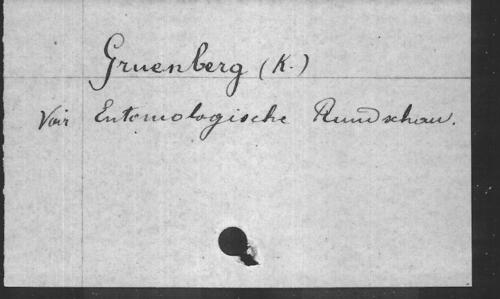 Gruenberg (K.)
Voir Entomologische Rundschau.